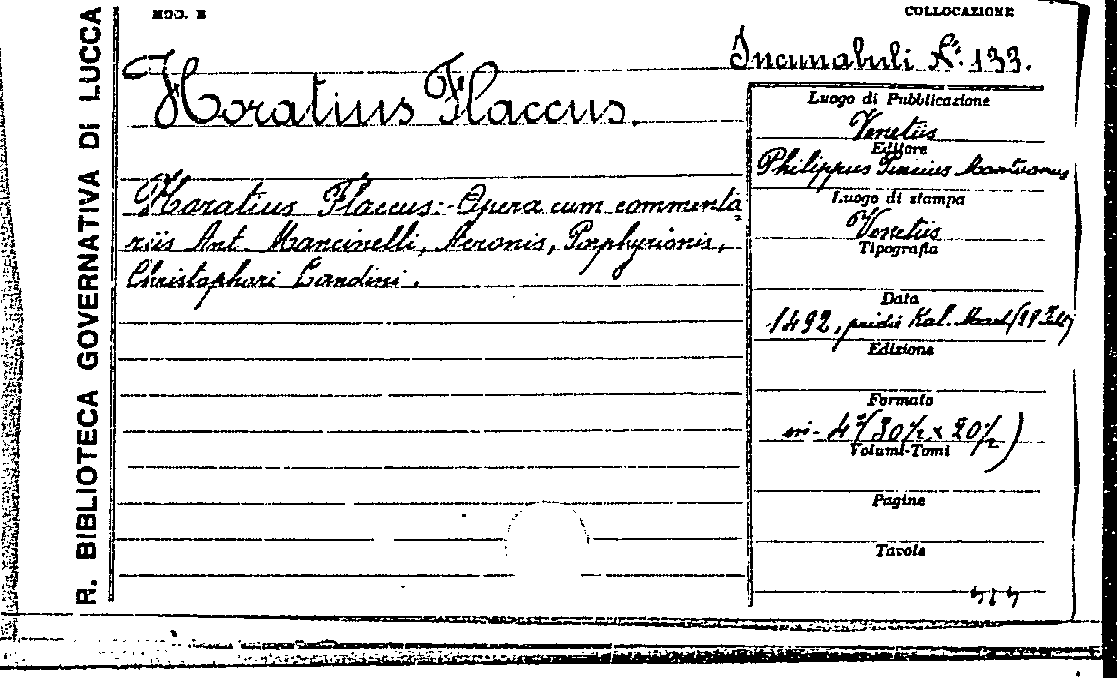 MOD. E
COLLOCAZIONE
R. BIBLIOTECA GOVERNATIVA DI LUCCA
Incunabuli N.º 133.
Horatius Flaccus.
Luogo di Pubblicazione
Venetiis
Editore
Philippus Pincius Mantuanus
Luogo di stampa
Venetiis
Tipografia
Data
1492, pridie Kal. Mart
Edizione
Formato
in-4º (30½ x 20½)
Volumi-Tomi
Pagine
Tavole
Horatius Flaccus:- Opera cum commenta
riis Ant. Mancinelli, Acronis, Porphyrionis,
Christophori Landini.